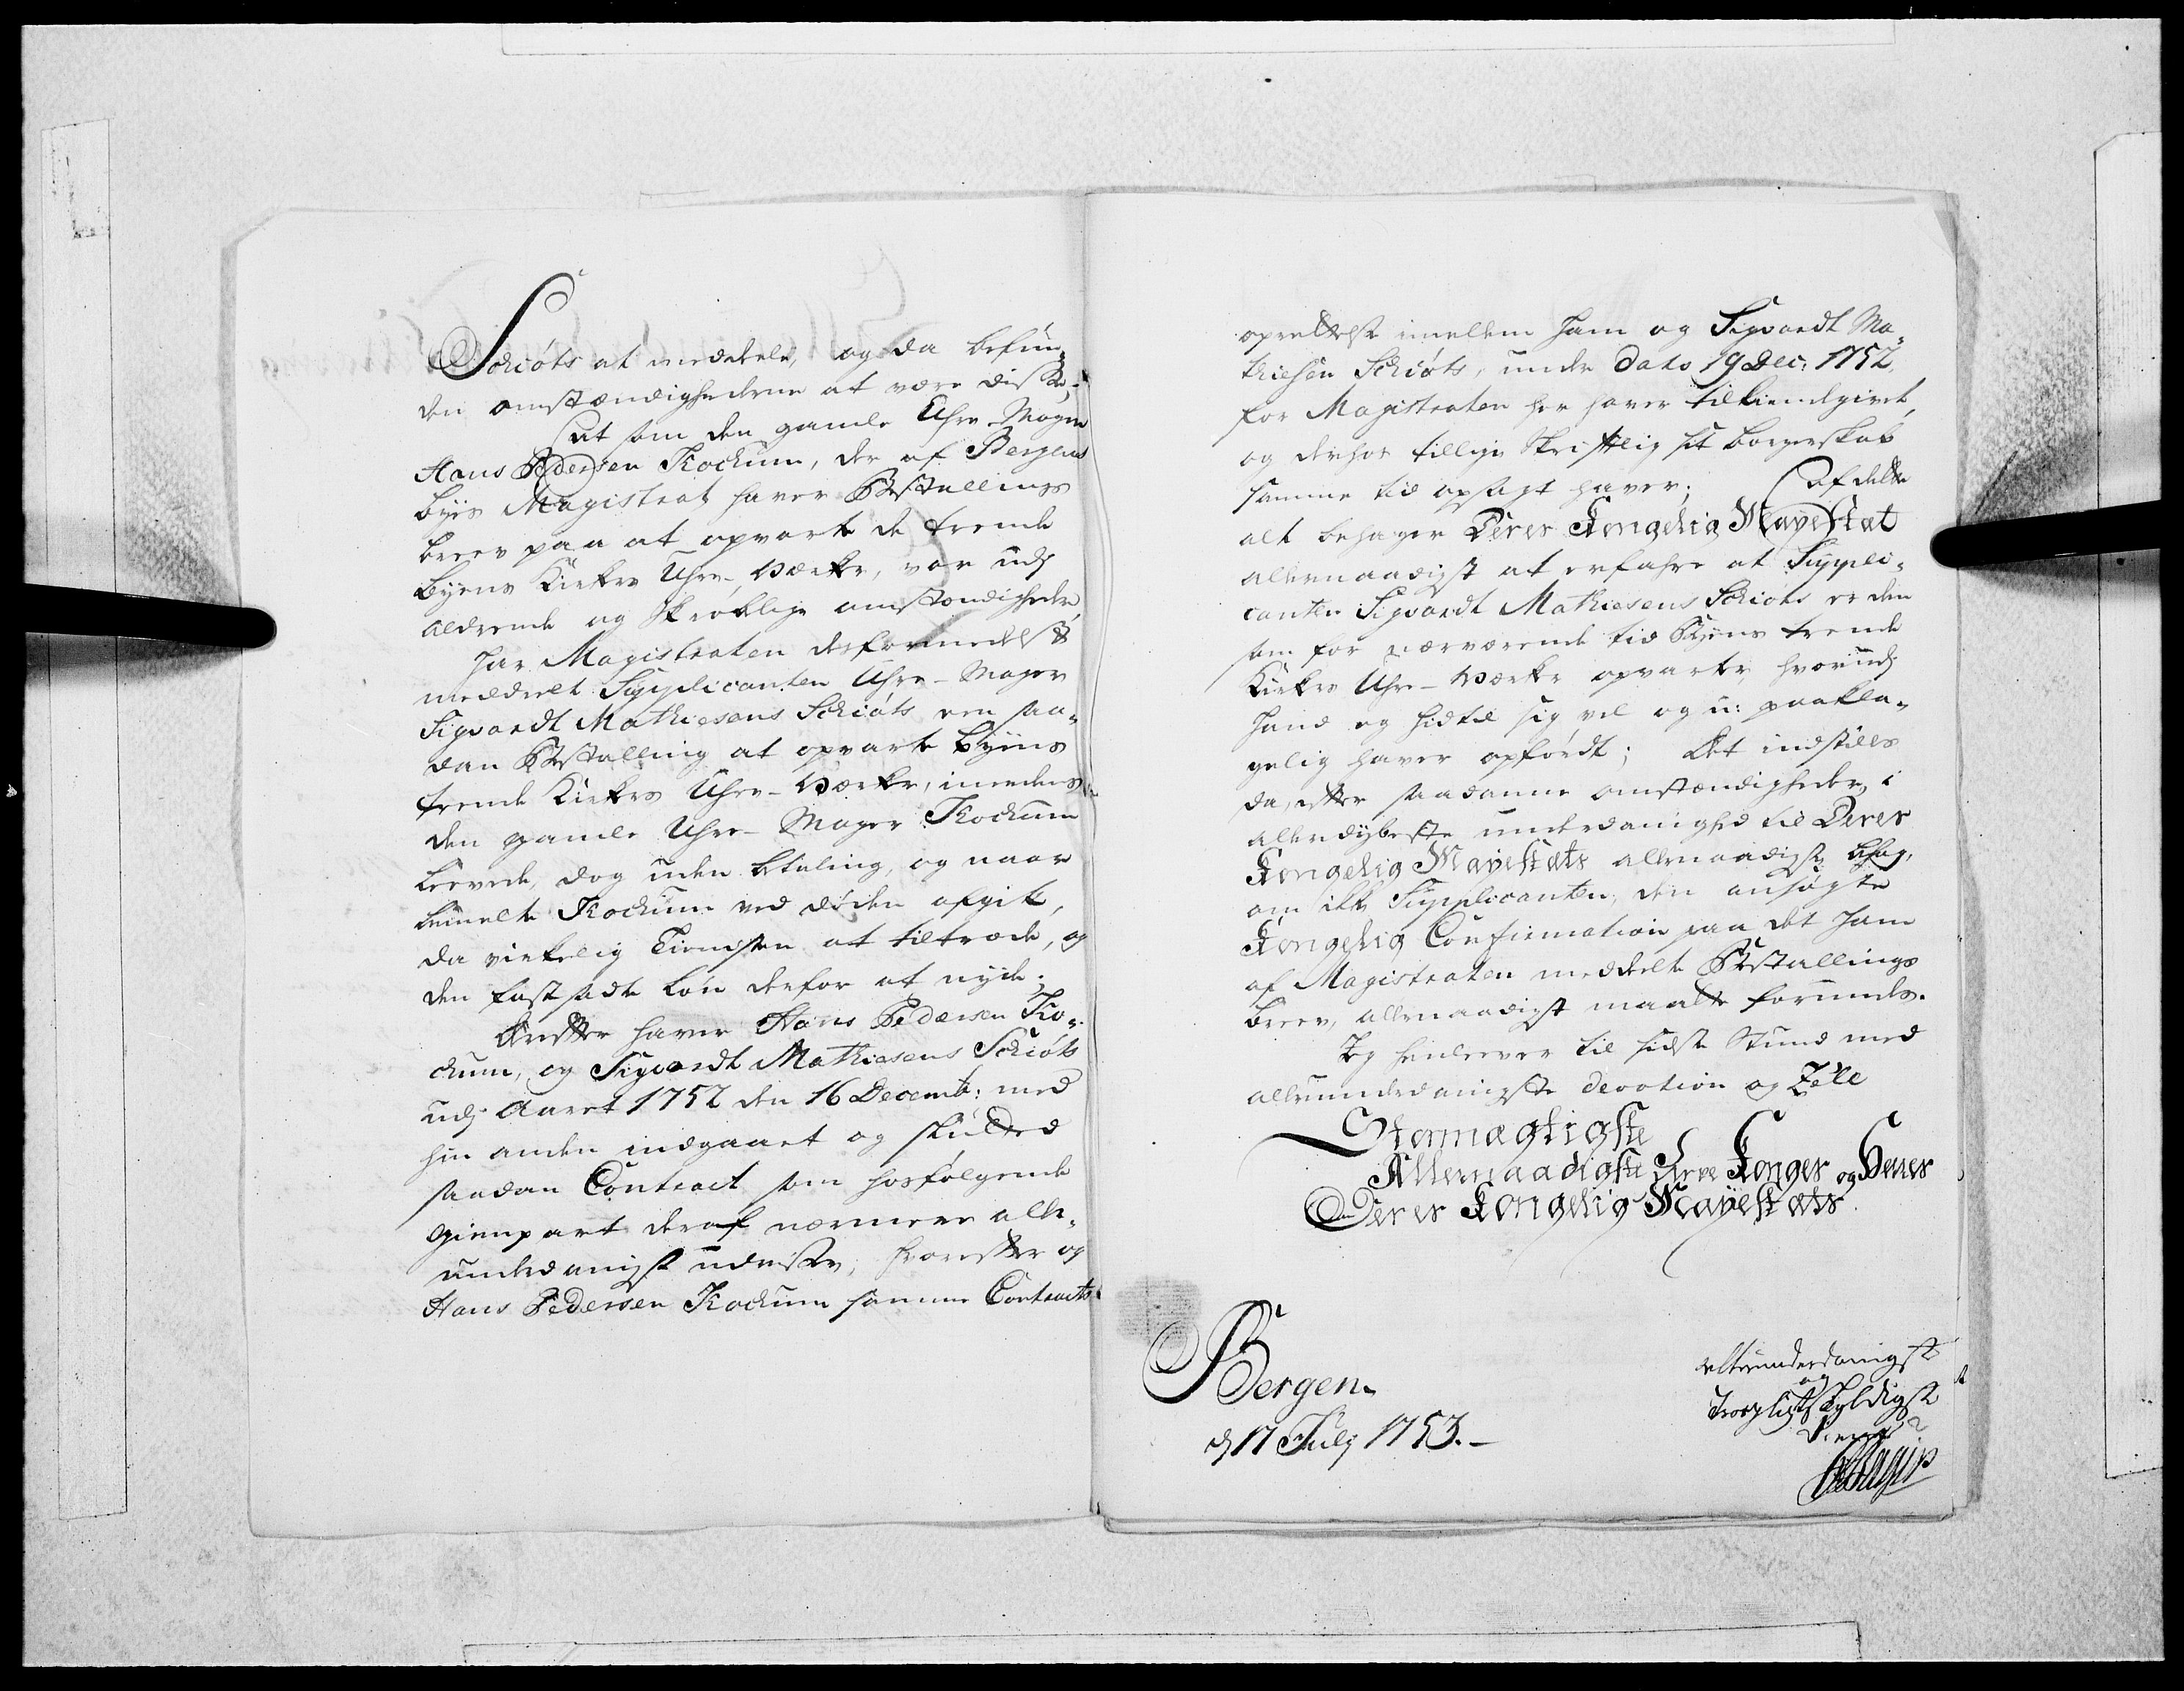 Schiøts at meddeele, og da befun¬
den omstændighederne at være disse;
at som den gamle Uhre-Mager
Hans Pedersen Kockum, der af Bergens
byes Magistrat haver Bestallings
breev paa at opvarte de trende
byens Kirkers Uhre-Værker, var udj
aldrende og skrøblige omstændigheder,
har Magistraten derformedelst
meddeelt Supplicanten Uhre-Mager
Sigvardt Mathiesens Schiøts een saa¬
dan Bestalling at opvarte Byens
trende Kirkers Uhre-Værker, imedens
den gamle Uhre-Mager Kockum
leevede, dog uden betaling, og naar
bemelte Kockum ved døden afgik,
da virkelig Tienesten at tiltræde, og
den fastsadte Løn derfor at nyde;
derefter haver Hans Pedersen Ko¬
ckum, og Sigvardt Mathiesens Schiøts
udj Aaret 1752 den 16 Decemb: med
hin anden indgaaet og slutted
saadan Contract som hosfølgende
gienpart deraf nærmere aller¬
underdanigst udviser, hvorefter og
Hans Pedersen Kockum samme Contracts
oprettelse imellem ham og Sigvardt Ma¬
thiesen Schiøts, under dato 19 Dec: 1752
for Magistraten her haver tilkiendegivet,
og derhos tillige skriftlig sit borgerskab
samme tid opsagt haver; Af dette
alt behager Deres Kongelig Mayestæt
allernaadigst at erfahre at Suppli¬
canten Sigvardt Mathiesens Schiøts er den
som for nærværende tid Byens trende
Kirkers Uhre-Værker opvarter, hvorudj
hand og hidtil sig vel og u: paakla¬
gelig haver opfördt; Det indstilles
da, efter saadanne omstændigheder, i
allerdybeste underdanighed til Deres
Kongelig Mayestæts allernaadigste behag,
om ikke Supplicanten, den ansøgte
Kongelig Confirmation paa det ham
af Magistraten meddeelte Bestallings
breev, allernaadigst maatte forundes.
Jeg henlever til sidste Stund med
allerunderdanigste devotion og Zele
Stormægtigste
Allernaadigste Arve Konges og Herres
Deres Kongelig Mayestæts
Bergen
d 17 Julj 1753.
allerunderdanigste
og
troepligtskyldigste
Tiener